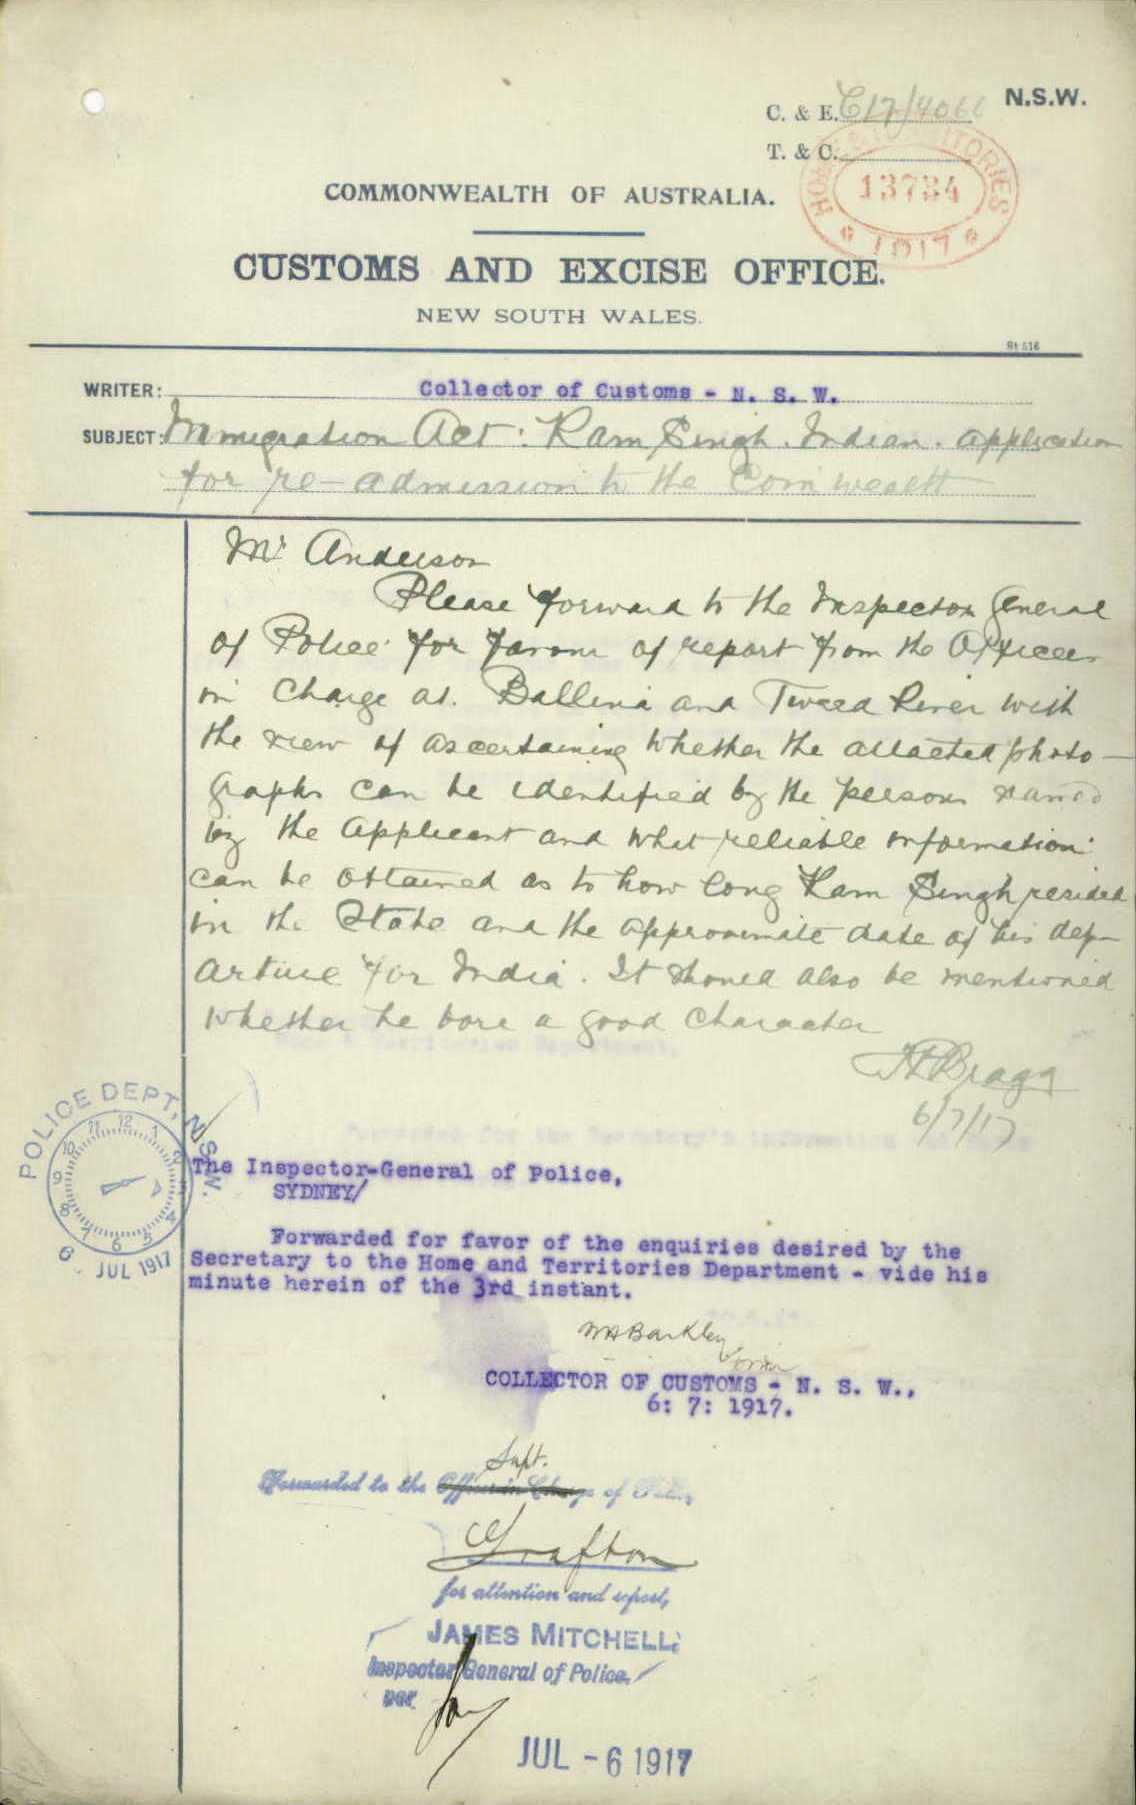 C. & E. C17/4066 N.S.W.
T. & C.
HOME & TERRITORIES
13784
* 1917 *
COMMONWEALTH OF AUSTRALIA.
CUSTOMS AND EXCISE OFFICE.
NEW SOUTH WALES.
St 516
WRITER: Collector of Customs - N. S. W.
SUBJECT: Immigration Act: Ram Singh. Indian. application
for re-admission to the Com'wealth
Mr Anderson
Please forward to the Inspector General
of Police for favour of report from the Officer
in Charge at Ballina and Tweed River with
the view of ascertaining whether the attached photo-
graphs can be identified by the persons named
by the Applicant and what reliable information
can be obtained as to how long Ram Singh resided
in the State and the approximate date of his dep-
arture for India. It should also be mentioned
whether he bore a good character
Bragg
6/7/17
POLICE DEPT, N.S.W.
12 1 2 4 5 6 7 8 9 10 11
6 JUL 1917
The Inspector-General of Police,
SYDNEY/
Forwarded for favor of the enquiries desired by the
Secretary to the Home and Territories Department - vide his
minute herein of the 3rd instant.
Barkley
COLLECTOR OF CUSTOMS - N. S. W.,
6: 7: 1917.
Supt.
Forwarded to the Officer in Charge of Police,
Grafton
for attention and report,
JAMES MITCHELL
Inspector General of Police.
per
JUL - 6 1917